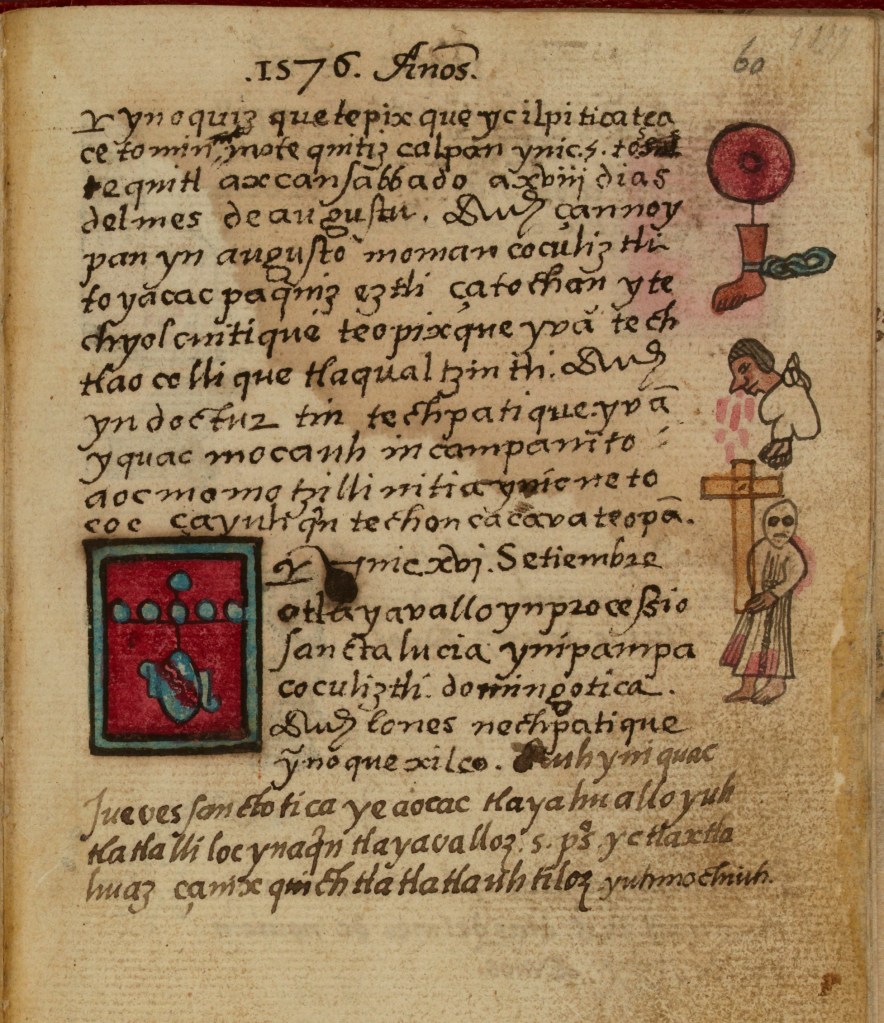 .1576. Años.
60
Y yn oquiz que tepix que yc ilpitica tça
ce tomin, mote quitiz calpan ynic .s.
tequitl axcan sabbado a xviii dias
del mes de augustu. Auh çan no y
pan yn augusto moman coculiztli
toyacac paquiz eztli ça tochan yte
chyolcuiti que teopixque yvā tech
tlao colli que tlaqualtzintli. Auh
yn doctur tin techpatique. yvā
yquac mocauh in campanito
aocmo motzillinitia ynic neto
coc ça yuhqn techoncacava teopā.
Y ynic xvi. Setiembre
otlayavallo yn processio
sancta lucia, ynipampa
coculiztli. domingotica.
Auh lones nechpatique
yno quexilco. Auh yniquac
Jueves sanctotica ye aocac tlayahuallo yuh
tlatlalliloc ynaqn tlayavalloz. s. po yc tlaxtla
huaz çanixquich tlatlatlauhtiloz yuhmochiuh.